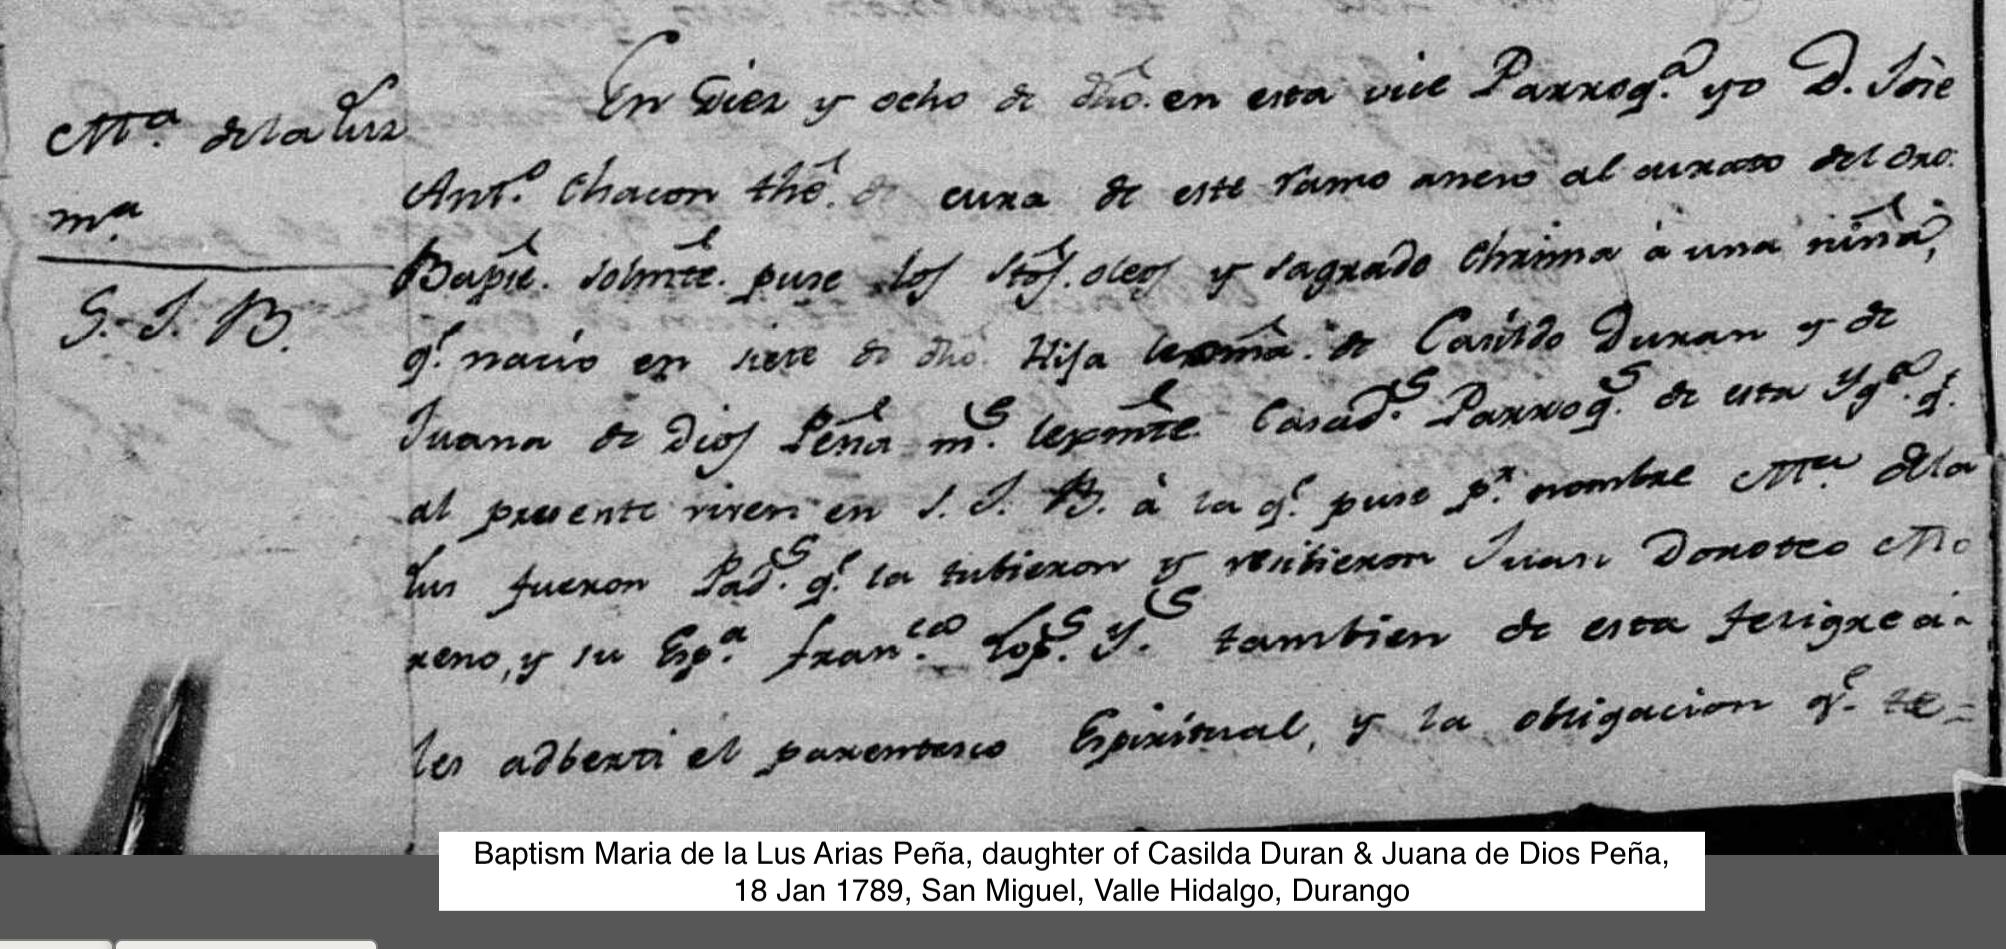 Mª. de la Luz
mª.
S. J. B.
En Diez y ocho de dho. en esta vice Parroqª. yo D. Jôse
Antº. Chacon thê. de cura de este ramo anexo al curato del Oro.
Bapte. solmte. puse los Stos. oleos y sagrado Chrisma à una niña,
qe. nacio en siete de dho. Hija lexma. de Casildo Duran y de
Juana de Dios Peña ms. lexmte. Casads. Parroqs. de esta Ygª. qe.
al presente viven en S. J. B. à la qe. puse pr. nombre Mª. de la
Lus fueron Pads. qe. la tubieron y resibieron Juan Doroteo Mo
reno, y su Espª. Franca. Lops. Ys. tambien de esta feligrecia
les adberti el parentesco Espiritual, y la obligacion qe. te=
Baptism Maria de la Lus Arias Peña, daughter of Casilda Duran & Juana de Dios Peña,
18 Jan 1789, San Miguel, Valle Hidalgo, Durango